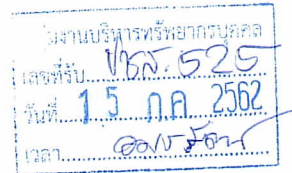 งานบริหารทรัพยากรบุคคล
เลขที่รับ..... 525
วันที่ 15 ก.ค. 2562
เวลา.....